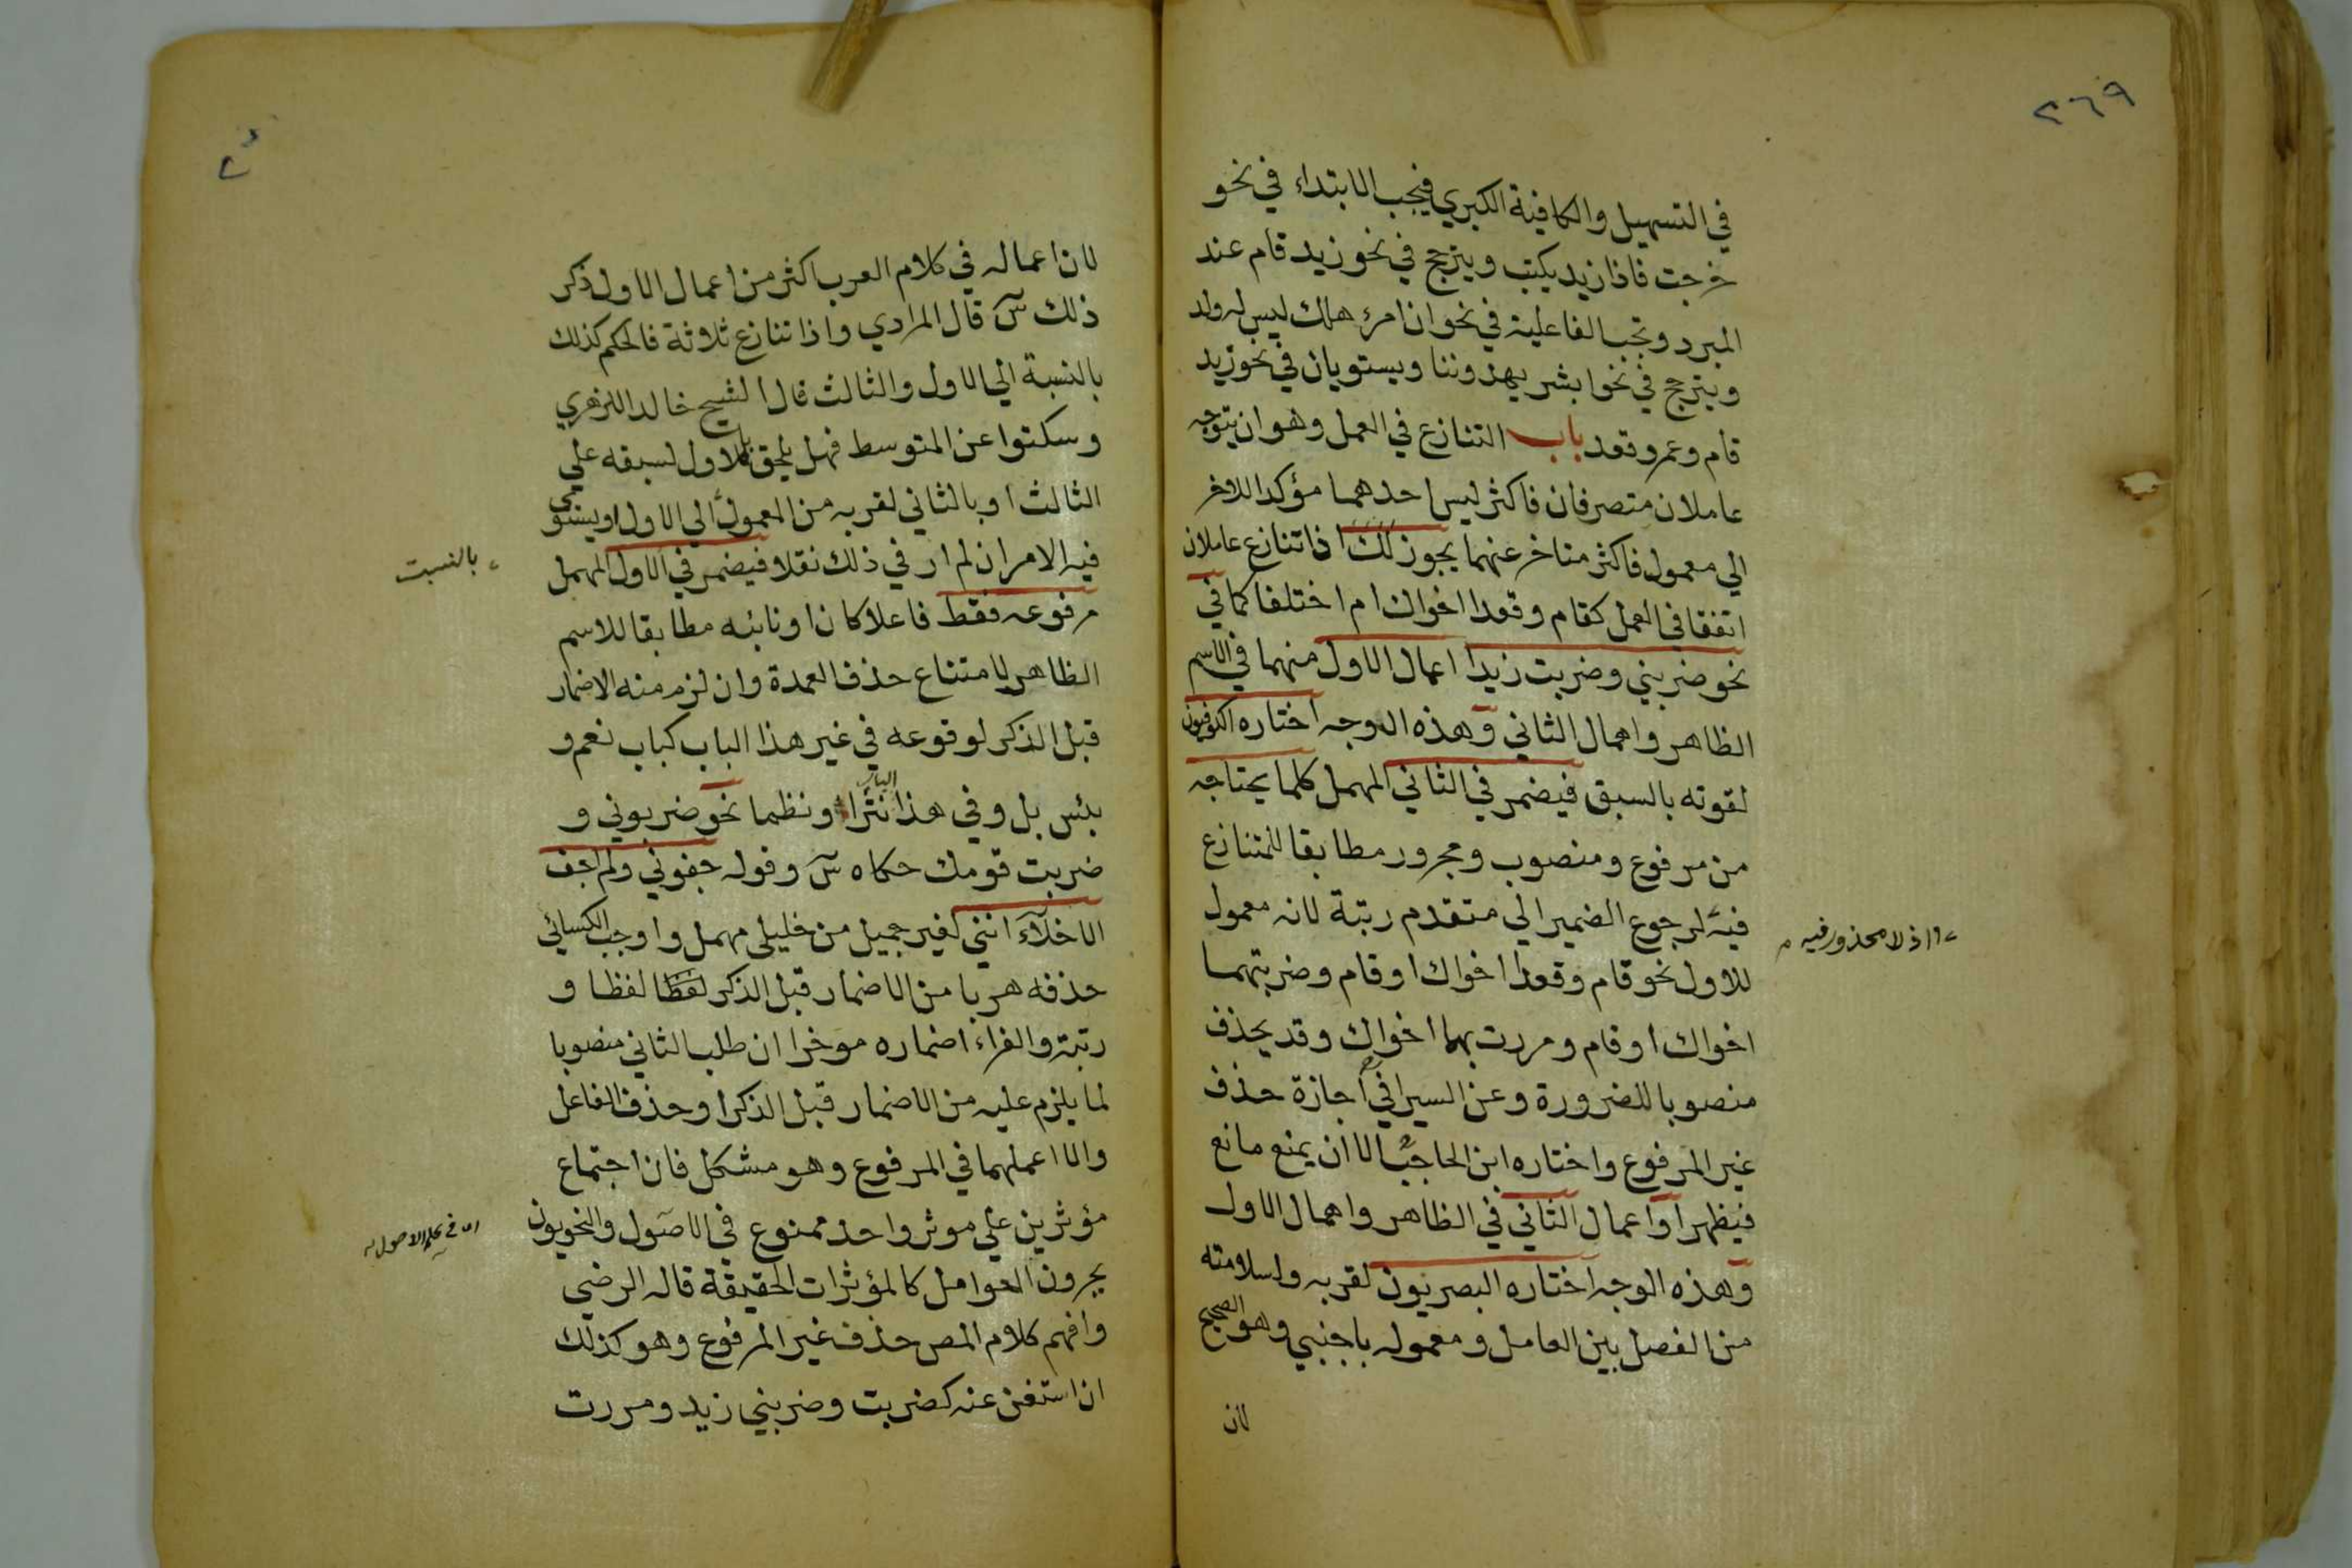 ٢٦٩
في التسهيل والكافية الكبري فيجب الابتداء في نحو
خرجت فاذا زيد يكتب ويترجح في نحو زيد قام عند
المبرد وتجب الفاعلية في نحو ان امرؤ هلك ليس له ولد
ويترجح في نحو ابشر يهدوننا ويستويان في نحو زيد
قام وعمرو قعد باب التنازع في العمل وهو ان يتوجه
عاملان متصرفان فاكثر ليس احدهما مؤكدا للاخر
الي معمول فاكثر متاخر عنهما يجوز لك اذا تنازع عاملان
اتفقا في العمل كقام وقعدا اخواك ام اختلفا كما في
نحو ضربني وضربت زيدا اعمال الاول منهما في الاسم
الظاهر واهمال الثاني وهذه الوجه اختاره الكوفيون
لقوته بالسبق فيضمر في الثاني المهمل كلما يحتاجه
من مرفوع ومنصوب ومجرور مطابقا للمتنازع
فيه لرجوع الضمير الي متقدم رتبة لانه معمول
اذ لا محذور فيه
للاول نحو قام وقعدا اخواك او قام وضربتهما
اخواك او قام ومررت بهما اخواك وقد يحذف
منصوبا للضرورة وعن السيرافي اجازة حذف
غير المرفوع واختاره ابن الحاجب الا ان يمنع مانع
فيظهر او اعمال الثاني في الظاهر واهمال الاول
وهذه الوجه اختاره البصريون لقربه ولسلامته
من الفصل بين العامل ومعموله باجنبي وهو الصحيح
لان
لان اعماله في كلام العرب اكثر من اعمال الاول ذكر
ذلك س قال المرادي واذا تنازع ثلاثة فالحكم كذلك
بالنسبة الي الاول والثالث قال الشيخ خالد الازهري
وسكتوا عن المتوسط فهل يلحق بالاول لسبقه علي
الثالث او بالثاني لقربه من المعمول الي الاول او يستوي
بالنسبت
فيه الامران لم ار في ذلك نقلا فيضمر في الاول المهمل
مرفوعه فقط فاعلا كان او نائبه مطابقا للاسم
الظاهر لامتناع حذف العمدة وان لزم منه الاضمار
قبل الذكر لوقوعه في غير هذا الباب كباب نعم و
بئس بل وفي هذا الباب نثرا ونظما نحو ضربوني و
ضربت قومك حكاه س وقوله جفوني ولم اجف
الاخلاء انني لغير جميل من خليلي مهمل واوجب الكسائي
حذفه هربا من الاضمار قبل الذكر لفظا لفظا و
رتبة والفراء اضماره موخرا ان طلب الثاني منصوبا
لما يلزم عليه من الاضمار قبل الذكر او حذف الفاعل
والا اعملهما في المرفوع وهو مشكل فان اجتماع
مؤثرين علي موثر واحد ممنوع في الاصول والنحويون
في علم الاصول
يجرون العوامل كالمؤثرات الحقيقة قاله الرضي
وافهم كلام المص حذف غير المرفوع وهو كذلك
ان استغن عنه كضربت وضربني زيد ومررت